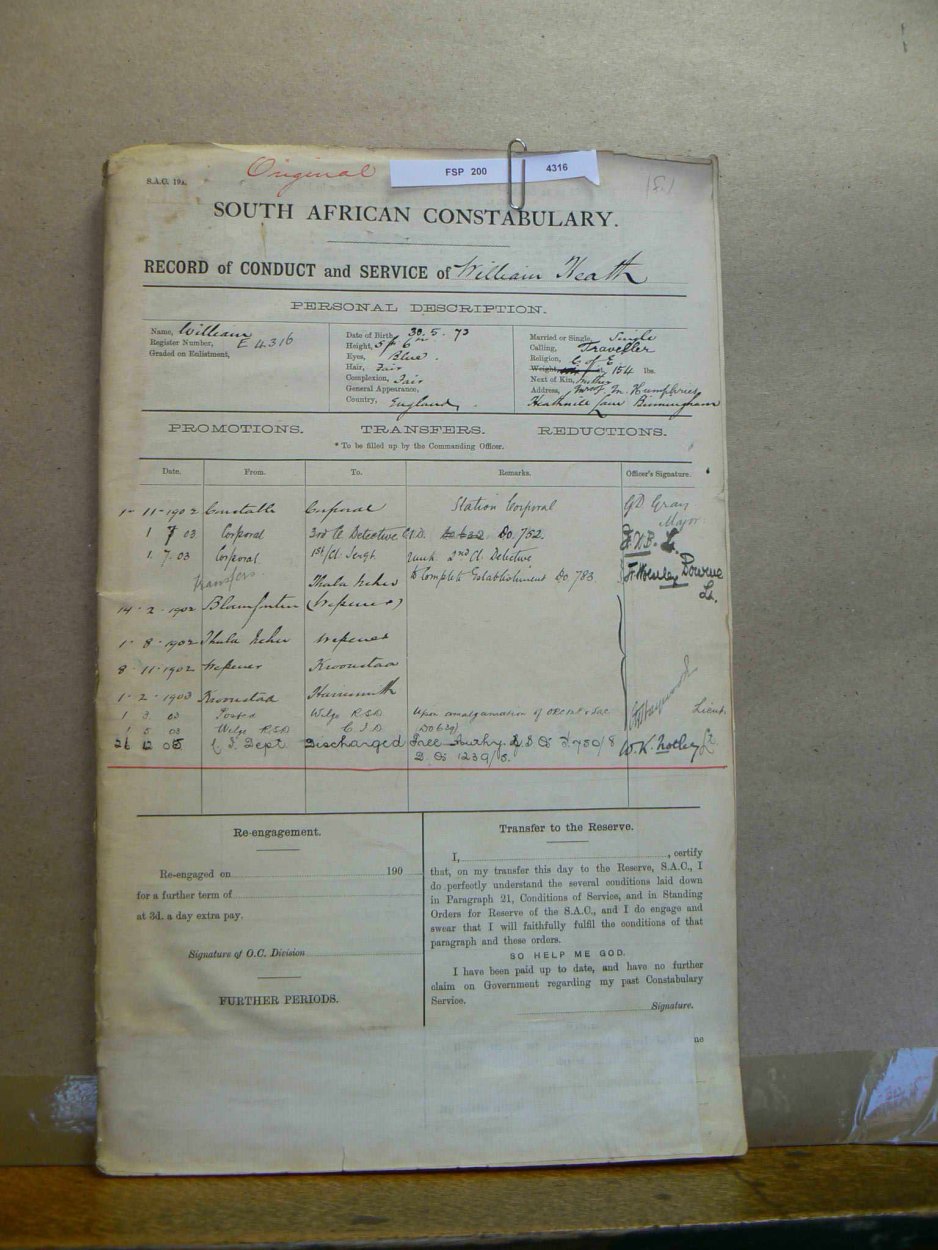 Original
FSP 200 4316
S.A.C. 19A.
SOUTH AFRICAN CONSTABULARY.
RECORD of CONDUCT and SERVICE of William Heath
PERSONAL DESCRIPTION.
Name, William
Register Number, E 4316
Graded on Enlistment,
Date of Birth, 30. 5. 73
Height, 5 ft 6 in
Eyes, Blue.
Hair, Fair
Complexion, Fair
General Appearance,
Country, England
Married or Single, Single
Calling, Traveller
Religion, C of E
Weight, 154 lbs.
Next of Kin, Mother
Address, M. Humphries
Lane Birmingham
PROMOTIONS. TRANSFERS. REDUCTIONS.
* To be filled up by the Commanding Officer.
Date. From. To. Remarks. Officer's Signature.
1-11-1902 Constable Corporal Station Corporal GD Gray Major
1 7 03 Corporal 3rd Cl Detective C.I.D. DO. 752.
1. 7. 03 Corporal 1st Cl. Sergt rank 2nd Cl Detective
to Complete Establishment DO. 783
Transfers
14-2-1902 Bloemfontein Thaba Nchu (Wepener)
1-8-1902 Thaba Nchu Wepener
8-11-1902 Wepener Kroonstad
1-2-1903 Kroonstad Harrismith
1 3 03 Posted Wilge R.S.D Upon amalgamation of ORC & SAC Lieut.
1 5 03 Wilge R.S.D C I D DO 639
26 12 05 C I Dept Discharged D. O. 1239/5.
Re-engagement.
Re-engaged on 190
for a further term of
at 3d. a day extra pay.
Signature of O.C. Division
FURTHER PERIODS.
Transfer to the Reserve.
I, , certify
that, on my transfer this day to the Reserve, S.A.C., I
do perfectly understand the several conditions laid down
in Paragraph 21, Conditions of Service, and in Standing
Orders for Reserve of the S.A.C., and I do engage and
swear that I will faithfully fulfil the conditions of that
paragraph and these orders.
SO HELP ME GOD.
I have been paid up to date, and have no further
claim on Government regarding my past Constabulary
Service.
Signature.